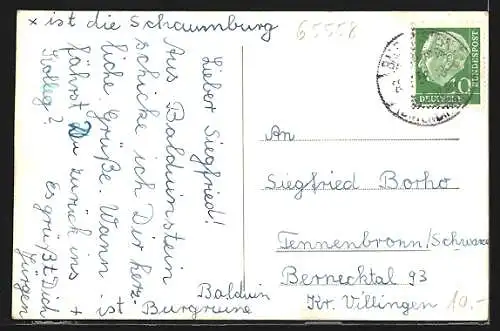 x ist die Schaumburg
65558
Lieber Siegfried!
Aus Balduinstein
schicke ich Dir herz-
liche Grüße. Wann
fährst Du zurück ins
Kolleg?
Es grüßt Dich
Jürgen
+ ist Balduin
Burgruine
DEUTSCHE
BUNDESPOST
10
An
Siegfried Borho
Tennenbronn/Schwarz
Bernecktal 93
Kr. Villingen
10.-